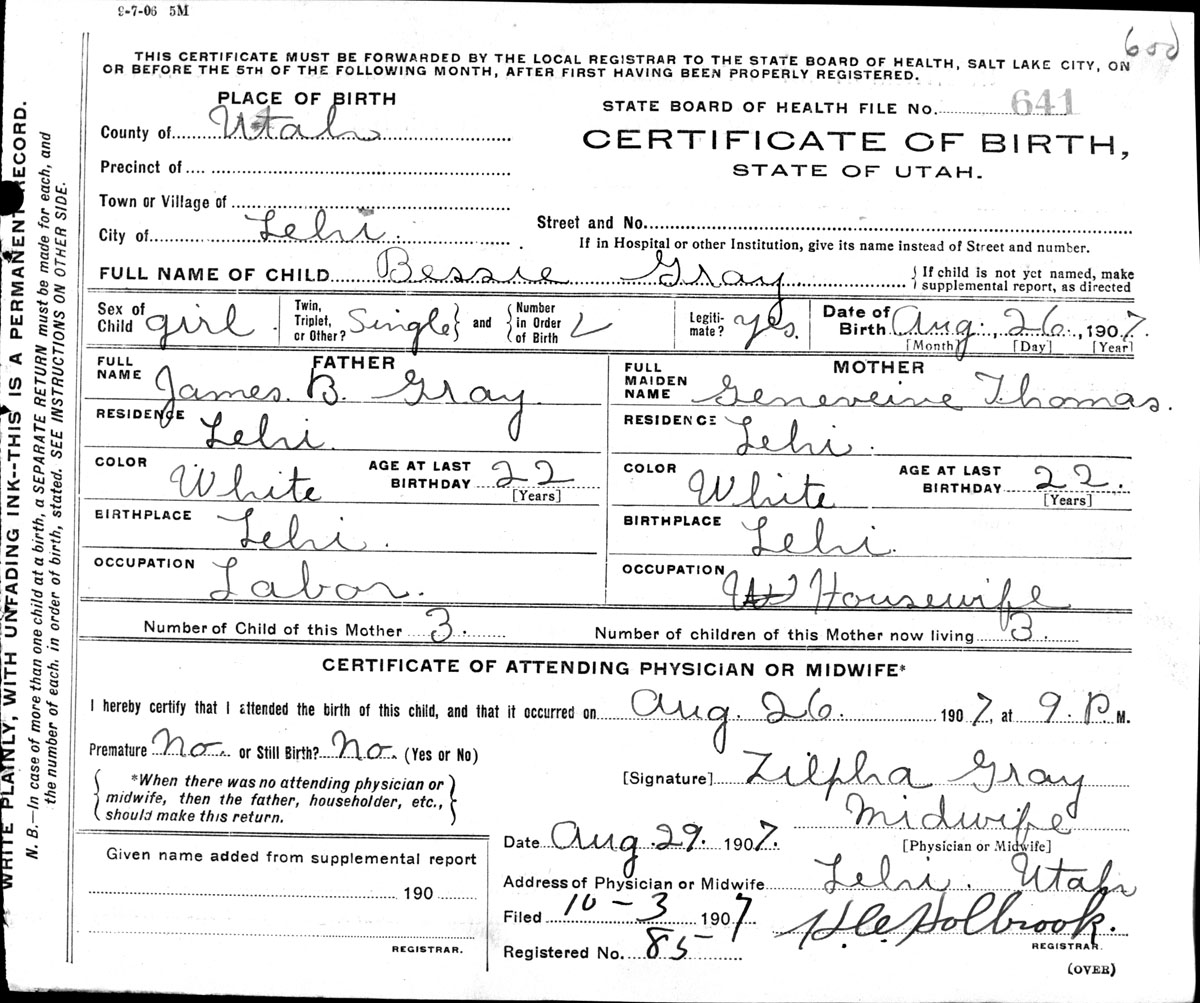 9-7-06 5M
600
THIS CERTIFICATE MUST BE FORWARDED BY THE LOCAL REGISTRAR TO THE STATE BOARD OF HEALTH, SALT LAKE CITY, ON
OR BEFORE THE 5TH OF THE FOLLOWING MONTH, AFTER FIRST HAVING BEEN PROPERLY REGISTERED.
PLACE OF BIRTH
STATE BOARD OF HEALTH FILE No. 641
County of Utah
CERTIFICATE OF BIRTH,
STATE OF UTAH.
Precinct of
Town or Village of
City of Lehi.
Street and No.
If in Hospital or other Institution, give its name instead of Street and number.
FULL NAME OF CHILD Bessie Gray
{ If child is not yet named, make
supplemental report, as directed
Sex of Child girl.
Twin, Triplet, or Other? Single } and { Number in Order of Birth 2
Legiti-mate? yes.
Date of Birth Aug., 26., 1907.
[Month] [Day] [Year]
FATHER
FULL NAME James. B. Gray.
RESIDENCE Lehi.
COLOR White
AGE AT LAST BIRTHDAY 22
[Years]
BIRTHPLACE Lehi.
OCCUPATION Labor.
MOTHER
FULL MAIDEN NAME Geneveine Thomas.
RESIDENCE Lehi.
COLOR White
AGE AT LAST BIRTHDAY 22.
[Years]
BIRTHPLACE Lehi.
OCCUPATION Housewife
Number of Child of this Mother 3.
Number of children of this Mother now living 3.
CERTIFICATE OF ATTENDING PHYSICIAN OR MIDWIFE*
I hereby certify that I attended the birth of this child, and that it occurred on Aug. 26. 1907, at 9. P. M.
Premature No. or Still Birth? No. (Yes or No)
{ *When there was no attending physician or
midwife, then the father, householder, etc.,
should make this return. }
[Signature] Zilpha Gray
Midwife
[Physician or Midwife]
Date Aug. 29. 1907.
Given name added from supplemental report
190
REGISTRAR.
Address of Physician or Midwife Lehi. Utah
Filed 10-3 1907
H.C. Holbrook.
REGISTRAR.
Registered No. 85
(OVER)
WRITE PLAINLY, WITH UNFADING INK--THIS IS A PERMANENT RECORD.
N. B.—In case of more than one child at a birth, a SEPARATE RETURN must be made for each, and
the number of each, in order of birth, stated. SEE INSTRUCTIONS ON OTHER SIDE.